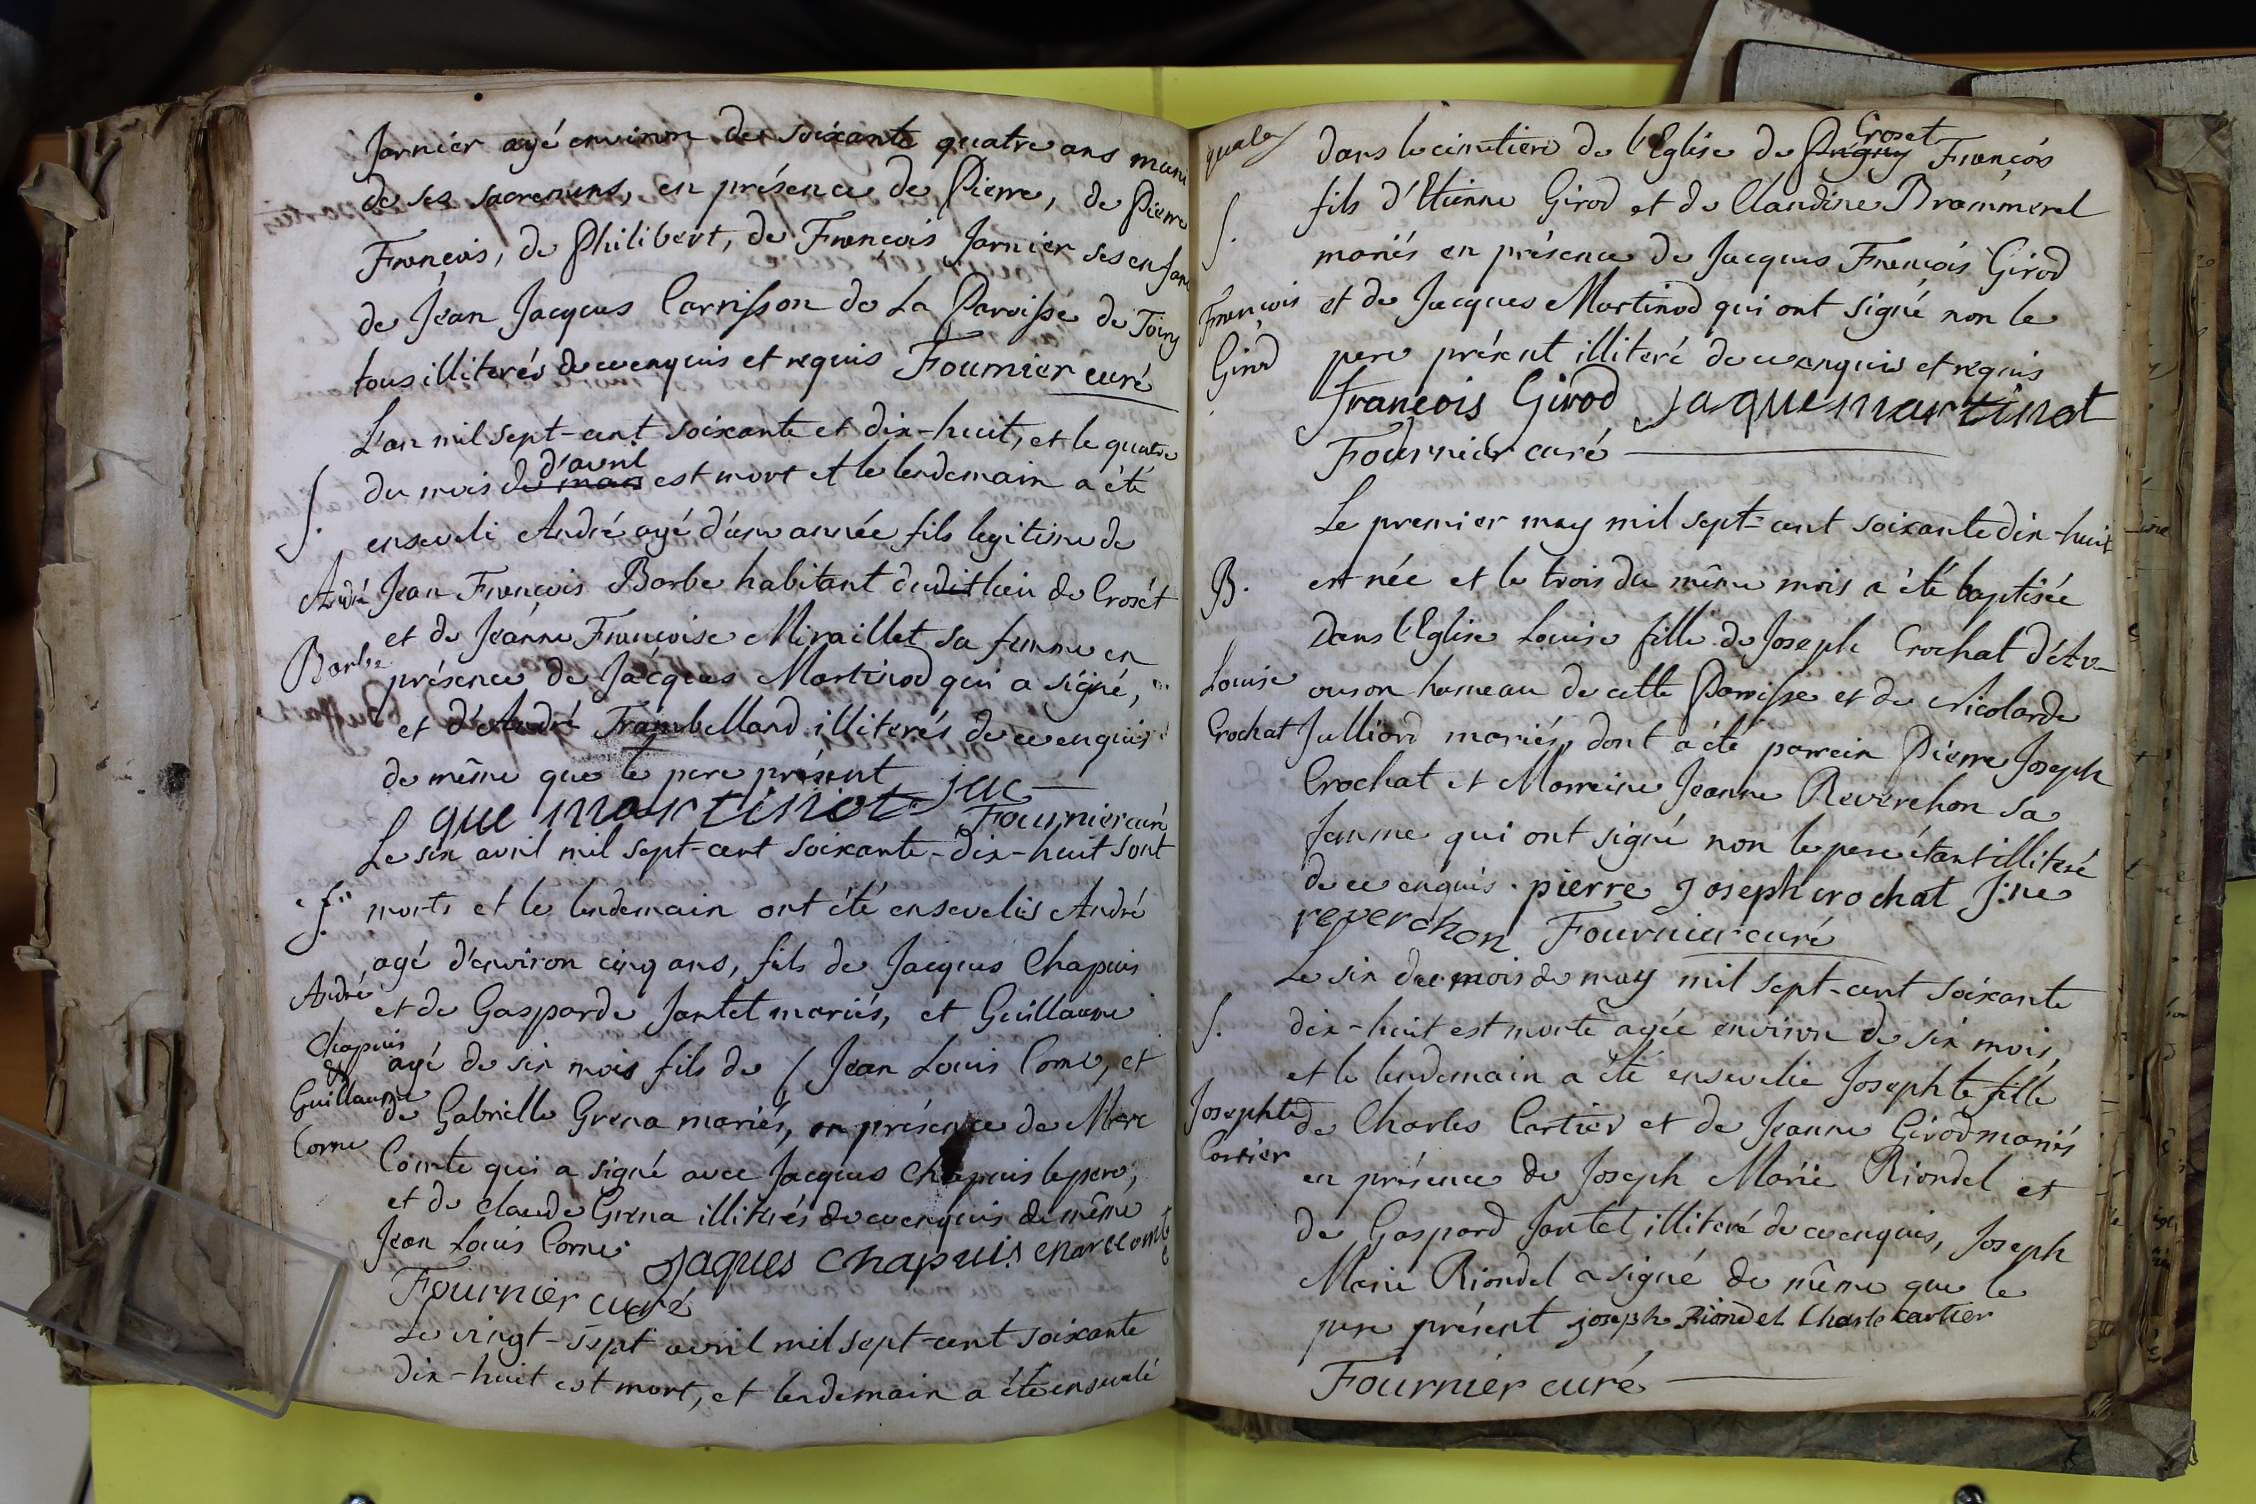 Jarnier agé environ de soixante quatre ans muni
de ses sacremens, en présence de Pierre, de Pierre
François, de Philibert, de François Jarnier ses enfans
de Jean Jacques Carrisson de La Paroisse de Toiry
tous illiterés de ce enquis et requis Fournier curé
L'an mil sept-cent soixante et dix-huit, et le quatre
d'avril
du mois de mars est mort et le lendemain a été
S.
enseveli André agé d'une année fils legitime de
André
Jean François Barbe habitant dudit lieu de Crosét
et de Jeanne Françoise Miraillet sa femme en
Barbe
présence de Jacques Martinod qui a signé,
et d'André Trambelland illiterés de ce enquis
de même que le pere présent
jac
que martinot Fournier curé
Le six avril mil sept-cent soixante-dix-huit sont
S.
morts et le lendemain ont été ensevelis André
agé d'environ cinq ans, fils de Jacques Chapuis
André
et de Gasparde Jantet mariés, et Guillaume
Chapuis
&
agé de six mois fils de Jean Louis Corne, et
Guillaume
de Gabrielle Grena mariés, en présence de Marc
Corne
Comte qui a signé avec Jacques Chapuis le pere,
et de Claude Grena illiterés de ce enquis de même
Jean Louis Corne. Jaques Chapuis marc comte
Fournier curé
Le vingt-sept avril mil sept-cent soixante
dix-huit est mort, et lendemain a été enseveli
Croset
dans le cimetiere de l'Eglise de Prégny François
fils d'Etienne Girod et de Claudine Brammerel
S.
mariés en présence de Jacques François Girod
François
et de Jacques Martinod qui ont signé non le
Girod
pere présent illiteré de ce enquis et requis
françois Girod jaque martinot
Fournier curé
Le premier may mil sept-cent soixante dix-huit
B.
est née et le trois du même mois a été baptisée
Dans l'Eglise Louise fille de Joseph Crochat d'Av-
Louise
ouson hameau de cette Paroisse et de Nicolarde
Crochat
Julliard mariés, dont a été parrein Pierre Joseph
Crochat et Marreine Jeanne Reverchon sa
femme qui ont signé non le pere étant illiteré
de ce enquis. pierre Joseph crochat J:ne
reverchon Fournier curé
Le six du mois de may mil sept-cent soixante
S.
dix-huit est morte agée environ de six mois,
et le lendemain a été ensevelie Josephte fille
Josephte
de Charles Cartier et de Jeanne Girod mariés
Cartier
en présence de Joseph Marie Riondel et
de Gaspard Jantet illiteré de ce enquis, Joseph
Marie Riondel a signé de même que le
pere présent joseph Riondel Charle cartier
Fournier curé